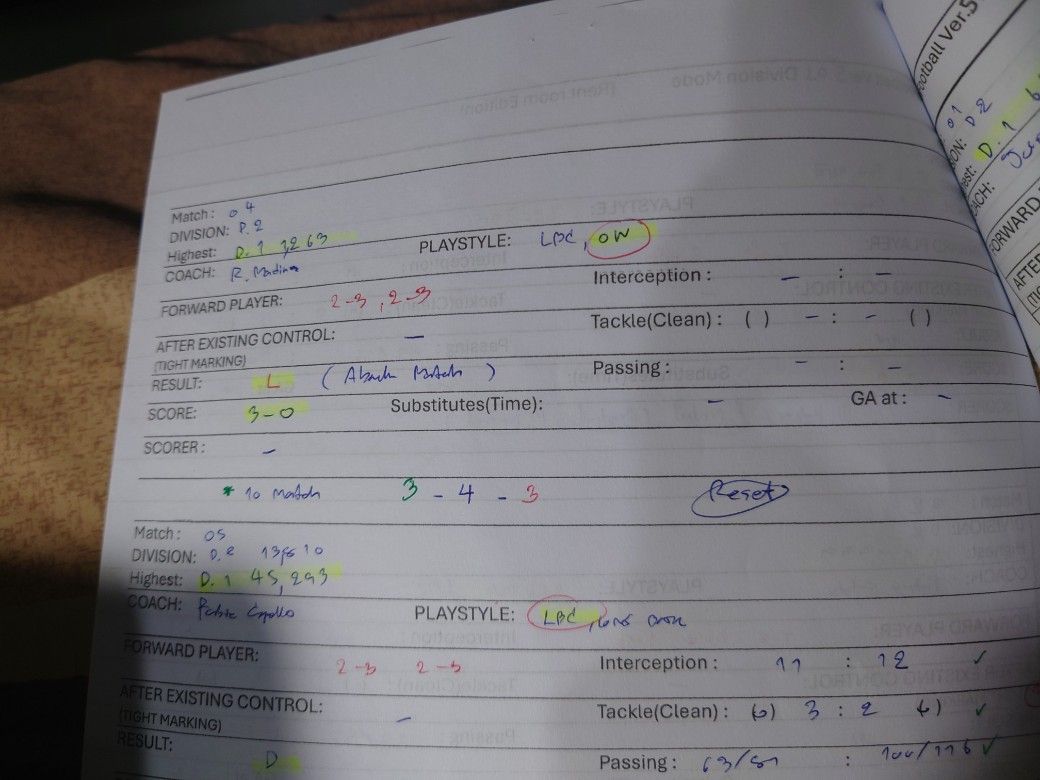 Match : 04
DIVISION: D.2
Highest: D.1 1,263 PLAYSTYLE: LBC, OW
COACH: R. Interception : – : –
FORWARD PLAYER: 2-3, 2-3
AFTER EXISTING CONTROL: – Tackle(Clean) : ( ) – : – ( )
(TIGHT MARKING)
RESULT: L ( Match ) Passing : – : –
SCORE: 3-0 Substitutes(Time): – GA at : –
SCORER : –
* 10 match 3 - 4 - 3 Reset
Match : 05
DIVISION: D.2
Highest: D.1 45,293
COACH: PLAYSTYLE: LBC,
FORWARD PLAYER: 2-3 2-3 Interception : 11 : 12 ✓
AFTER EXISTING CONTROL: – Tackle(Clean) : (6) 3 : 2 ✓
(TIGHT MARKING)
RESULT: D Passing : : 100/116 ✓
ootball Ver.5
01
ION: D.2
est: D.1
ACH:
ORWARD
AFTE